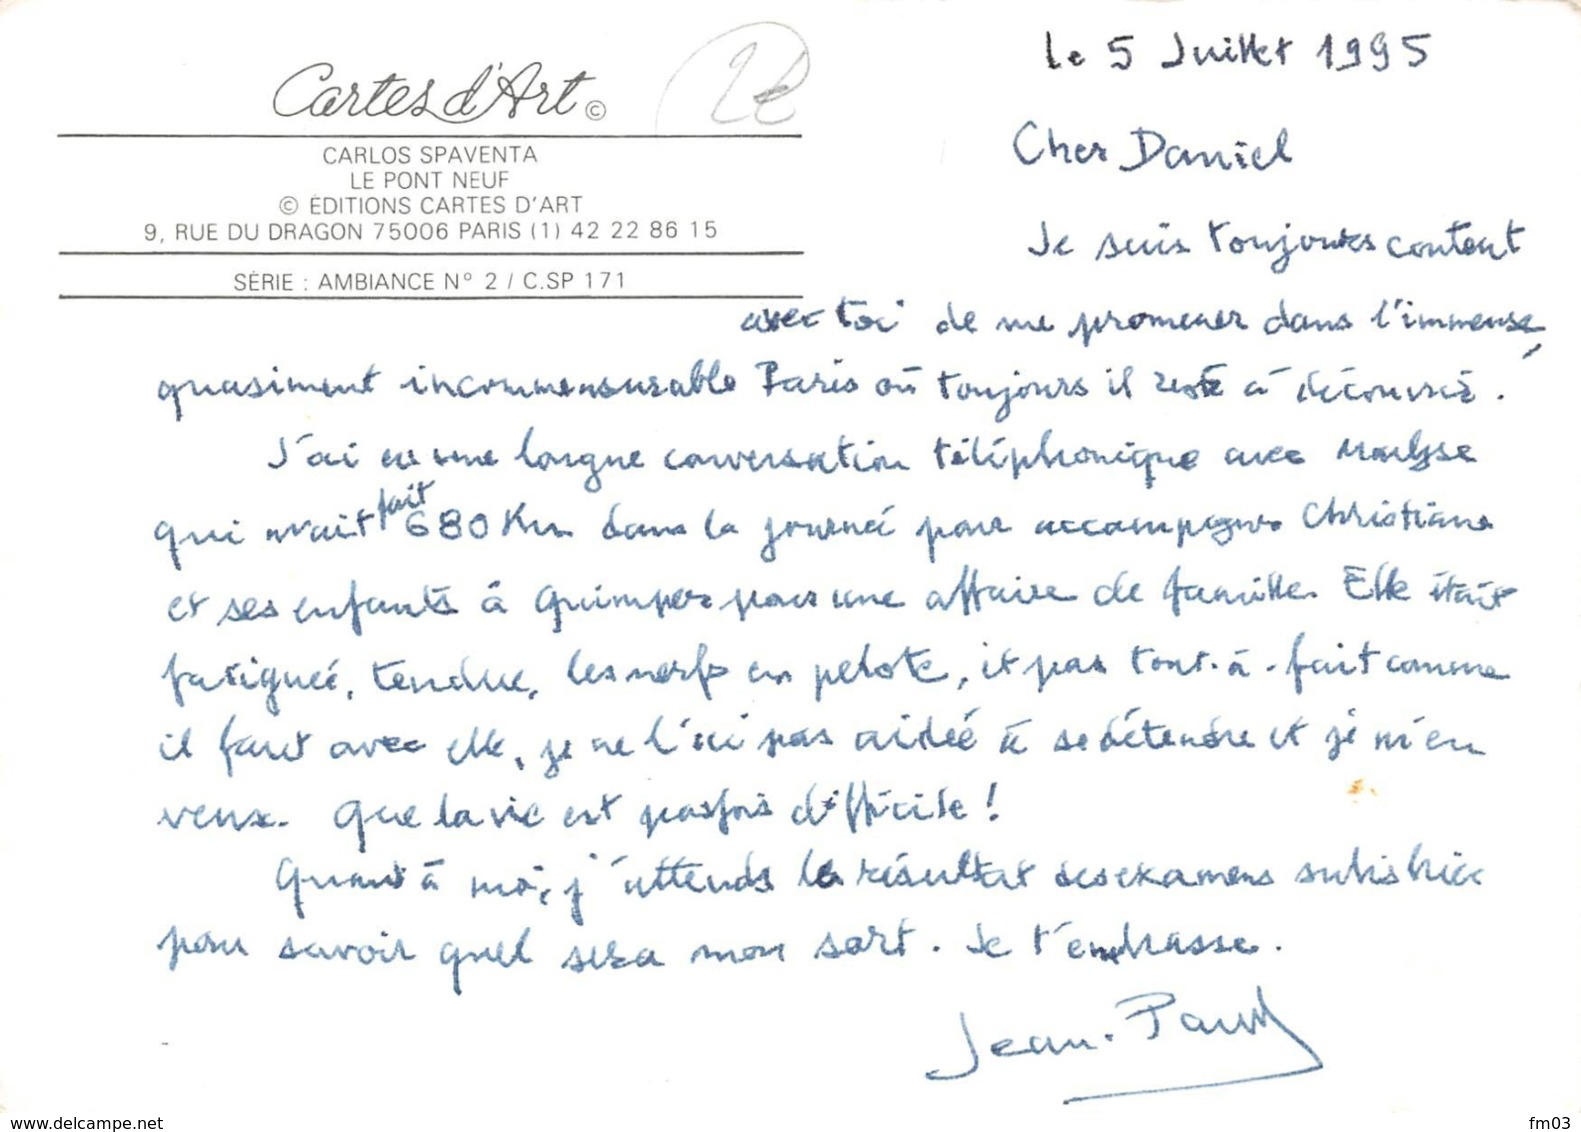 le 5 Juillet 1995
2€
Cartes d'Art ©
CARLOS SPAVENTA
LE PONT NEUF
© ÉDITIONS CARTES D'ART
9, RUE DU DRAGON 75006 PARIS (1) 42 22 86 15
SÉRIE : AMBIANCE N° 2 / C.SP 171
Cher Daniel
Je suis toujours content
avec toi de me promener dans l'immense,
quasiment incommensurable Paris où toujours il reste à découvrir.
J'ai eu une longue conversation téléphonique avec
qui avait fait 680 Km dans la journée pour accompagner Christiane
et ses enfants à Quimper pour une affaire de famille. Elle était
fatiguée, tendue, les nerfs en pelote, et pas tout-à-fait comme
il faut avec elle, je ne l'ai pas aidée à se détendre et je m'en
veux. Que la vie est parfois difficile !
Quant à moi, j'attends le résultat des examens subis hier
pour savoir quel sera mon sort. Je t'embrasse.
Jean-Paul
www.delcampe.net
fm03